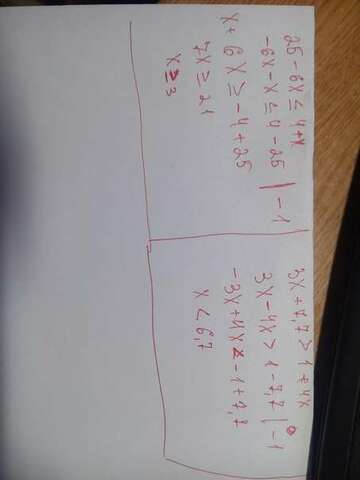 25 - 6x ≤ 4+x
-6x - x ≤ 4 - 25 | -1
x + 6x ≥ -4 + 25
7x ≥ 21
x ≥ 3
3x + 7,7 > 1 + 4x
3x - 4x > 1 - 7,7 | · -1
-3x + 4x < -1 + 7,7
x < 6,7